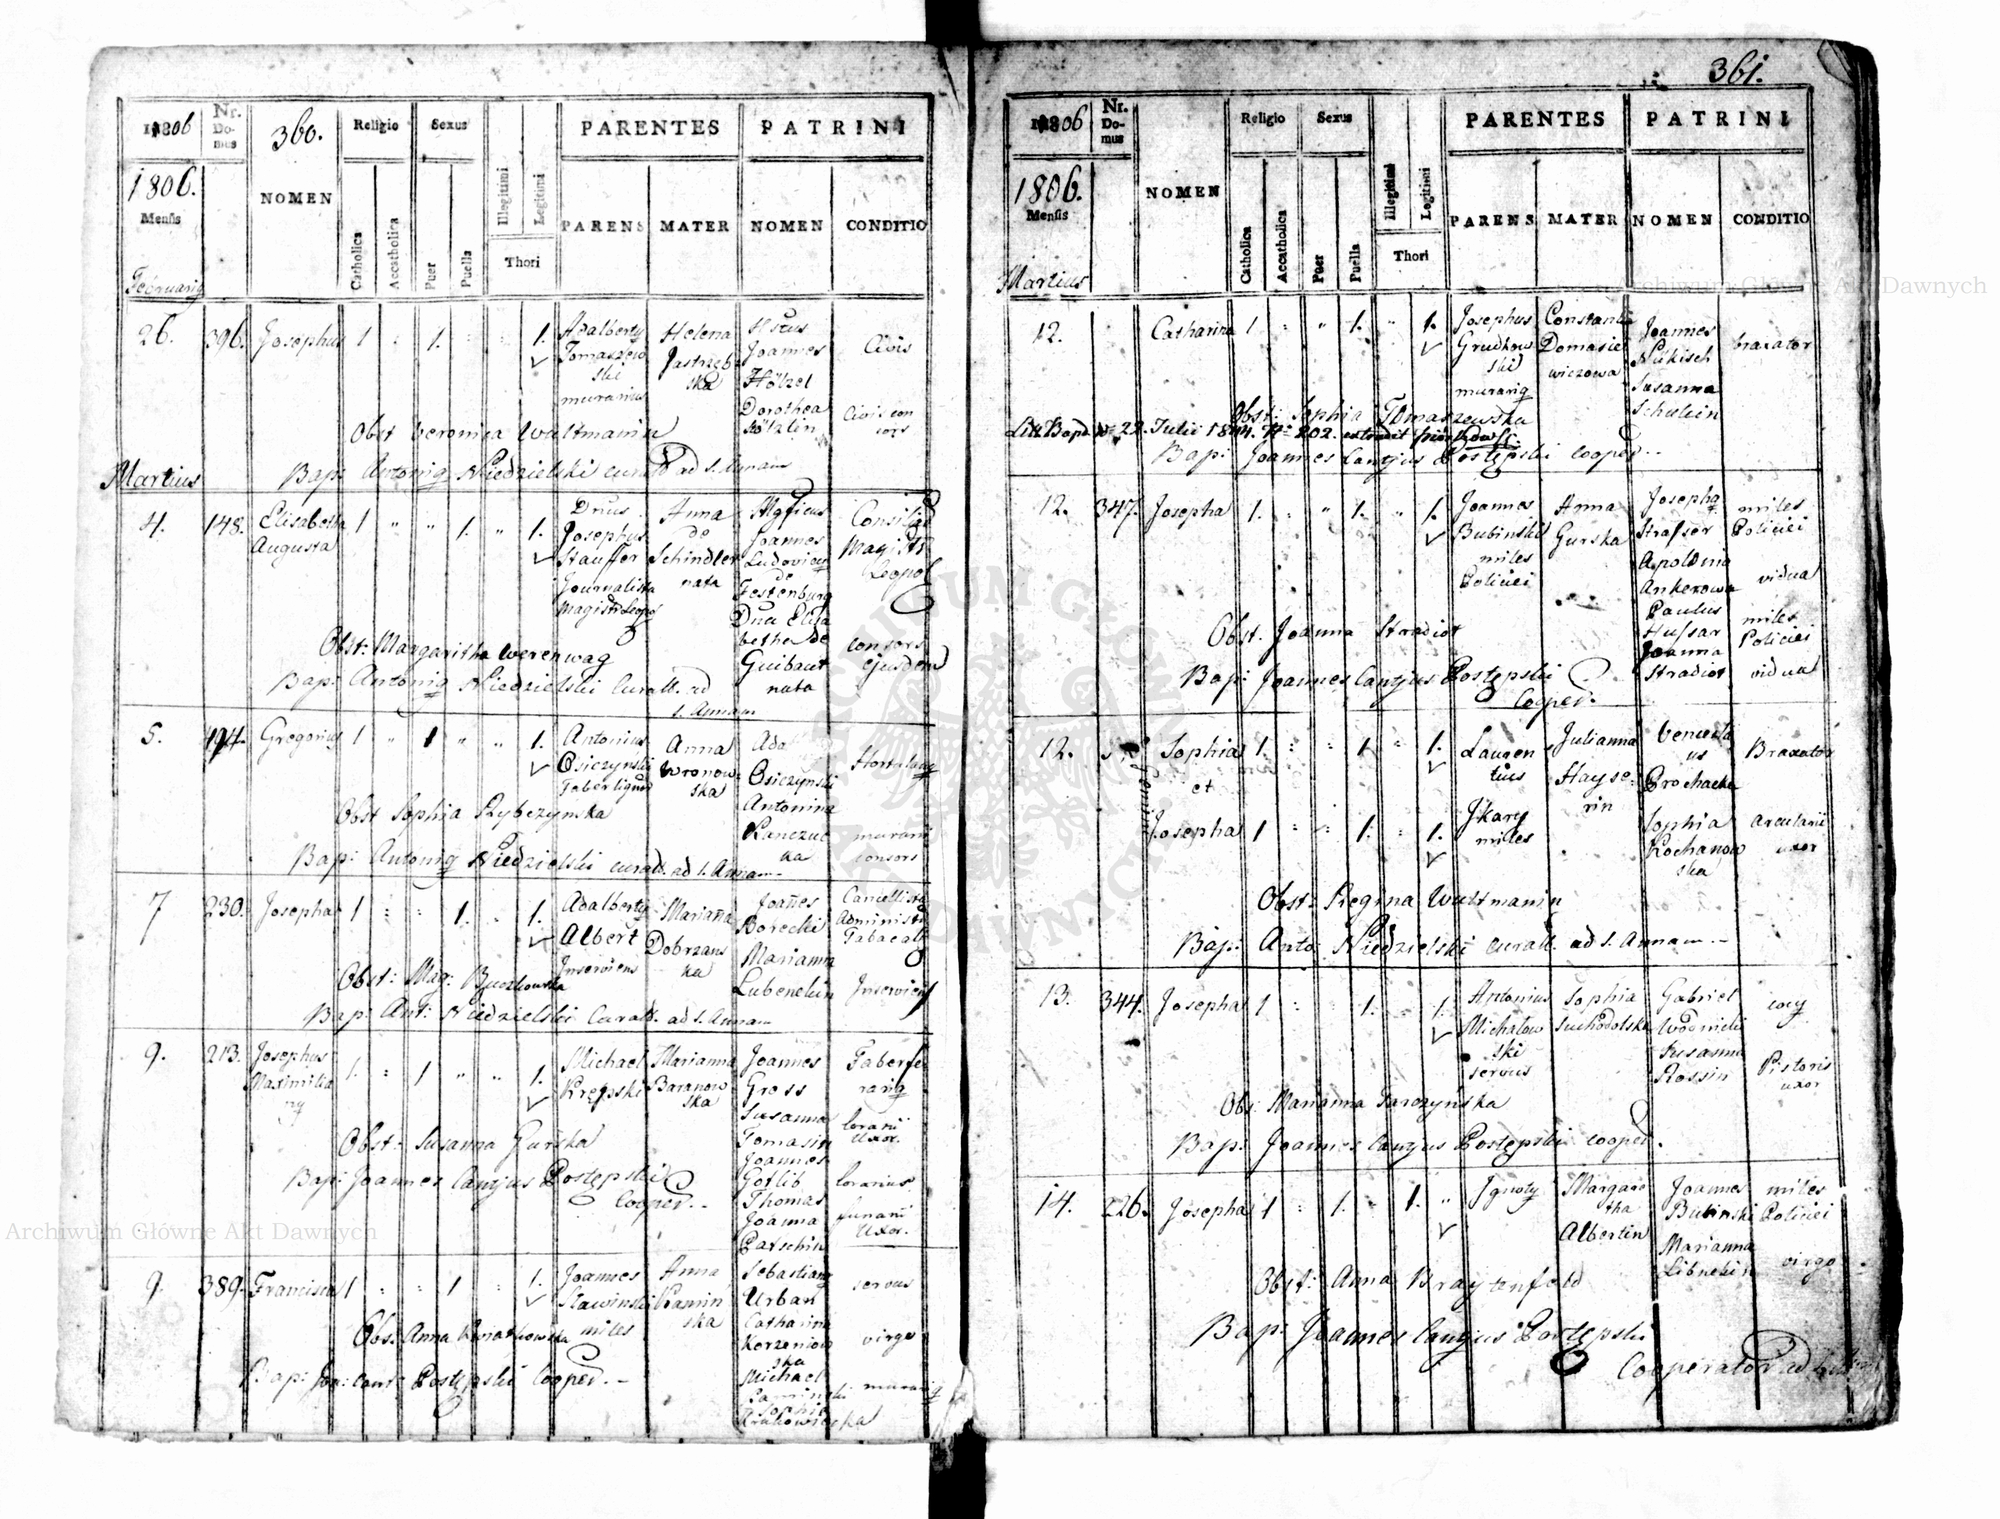 360.
1806
Nr. Domus
NOMEN
Religio
Sexus
PARENTES
PATRINI
1806.
Mensis
Februarij
Catholica
Accatholica
Puer
Puella
Illegitimi
Legitimi
Thori
PARENS
MATER
NOMEN
CONDITIO
26. 396. Josephus 1 1. 1.
Adalbertg
Tomaszew
ski
murarius
Helena
Jastrzęb
ska
Joannes
Hölzel
Dorothea
Hölzlin
Civis
Civis con
sors
Obst Veronica Wultmanin
Bap: Antonig Niedzielski curatt ad S. Annam
Martius
4. 148. Elisabetha 1 1. 1.
Augusta
Dnus
Josephus
Stauffer
Journalista
Magistr Leopol
Anna
de
Schindler
nata
Mgficus
Joannes
Ludovicus
de
Festenburg
Dna Elisa
betha de
Guibaut
nata
Magistr
Leopol
consors
ejusdem
Obst: Margaritha Werenwag
Bap: Antonig Niedzielski Curatt. ad
S. Annam
5. 194. Gregorius 1 1 1.
Antonius
Osiczynski
Faber lignar
Anna
Wronow
ska
Osiczynski
Antonina
Kanczuc
ka
Hortulang
murarii
consors
Obst Sophia Rybczynska
Bap: Antonig Niedzielski curatt. ad S. Annam
7 230. Josepha 1 1. 1.
Adalbertg
Albert
Inserviens
Marianna
Dobrzans
ka
Joannes
Borecki
Marianna
Lubenekin
Cancellista
Administr
Tabacal
Inserviens
Obst: Mag: Byczkowska
Bap: Ant: Niedzielski Curatt. ad S. Annam
9. 213. Josephus 1. 1 1.
Maximilia
ng
Michael
Krępski
Marianna
Baranow
ska
Joannes
Gross
Susanna
Tomasin
Joannes
Gotlib
Thomas
Joanna
Patschin
Faberfer
rarig
lorarii
Uxor.
lorarius
funarii
Uxor.
Obst: Susanna Gurska
Bap: Joannes Cantjus Postępski
Cooper.
9. 389. Francisca 1 1 1.
Joannes
Sławinski
miles
Anna
Kamin
ska
Sebastiang
Urban
Catharina
Korzeniow
ska
Michael
Sophia
servus
virgo
murarig
Obs: Anna Kwiatkowska
Bap: Joa: Cant: Postępski Cooper.
361.
1806
Nr. Domus
NOMEN
Religio
Sexus
PARENTES
PATRINI
1806.
Mensis
Martius
Catholica
Accatholica
Puer
Puella
Illegitimi
Legitimi
Thori
PARENS
MATER
NOMEN
CONDITIO
12. Catharina 1 1. 1.
Josephus
Grudkows
ski
murarig
Constantia
Domasie
wiczowa
Joannes
Nikisch
Susanna
Schubin
braxator
Obst: Sophia Tomaszewska
Litt Bapt. 22. Julii 1844. No 202. extradit
Bap: Joannes Cantjus Postępski cooper.
12. 347. Josepha 1. 1. 1.
Joannes
Bubinski
miles
Policiei
Anna
Gurska
Josephg
Strasser
Apolonia
Ankerowa
Paulus
Hussar
Joanna
Stradiot
miles
Policiei
vidua
miles
Policiei
vidua
Obst: Joanna Stradiot
Bap: Joannes Cantjus Postępski
Cooper.
12. Sophia 1. 1 1.
et
Josepha 1 1. 1.
Lauren
tius
miles
Julianna
Hayse
rin
Prochacka
Sophia
Kochanow
ska
Braxator
Arcularii
uxor
Obst: Regina Wultmanin
Bap: Anto: Niedzielski curatt. ad S. Annam
13. 344. Josepha 1 1. 1.
Antonius
Michalow
ski
servus
Sophia
Suchodolska
Gabriel
Wodnicki
Susanna
Rossin
cocg
Pistoris
uxor
Obs: Marianna Tarczyńska
Bap: Joannes Cantjus Postępski cooper.
14. 226. Josepha 1 1. 1.
Ignotg
Margare
tha
Albertin
Joannes
Bubinski
Marianna
Libnekin
miles
Policiei
virgo
Obst: Anna Braytenfeld
Bap: Joannes Cantjus Postępski
Cooperator ad
Archiwum Główne Akt Dawnych
Archiwum Główne Akt Dawnych
ARCHIWUM GŁÓWNE AKT DAWNYCH